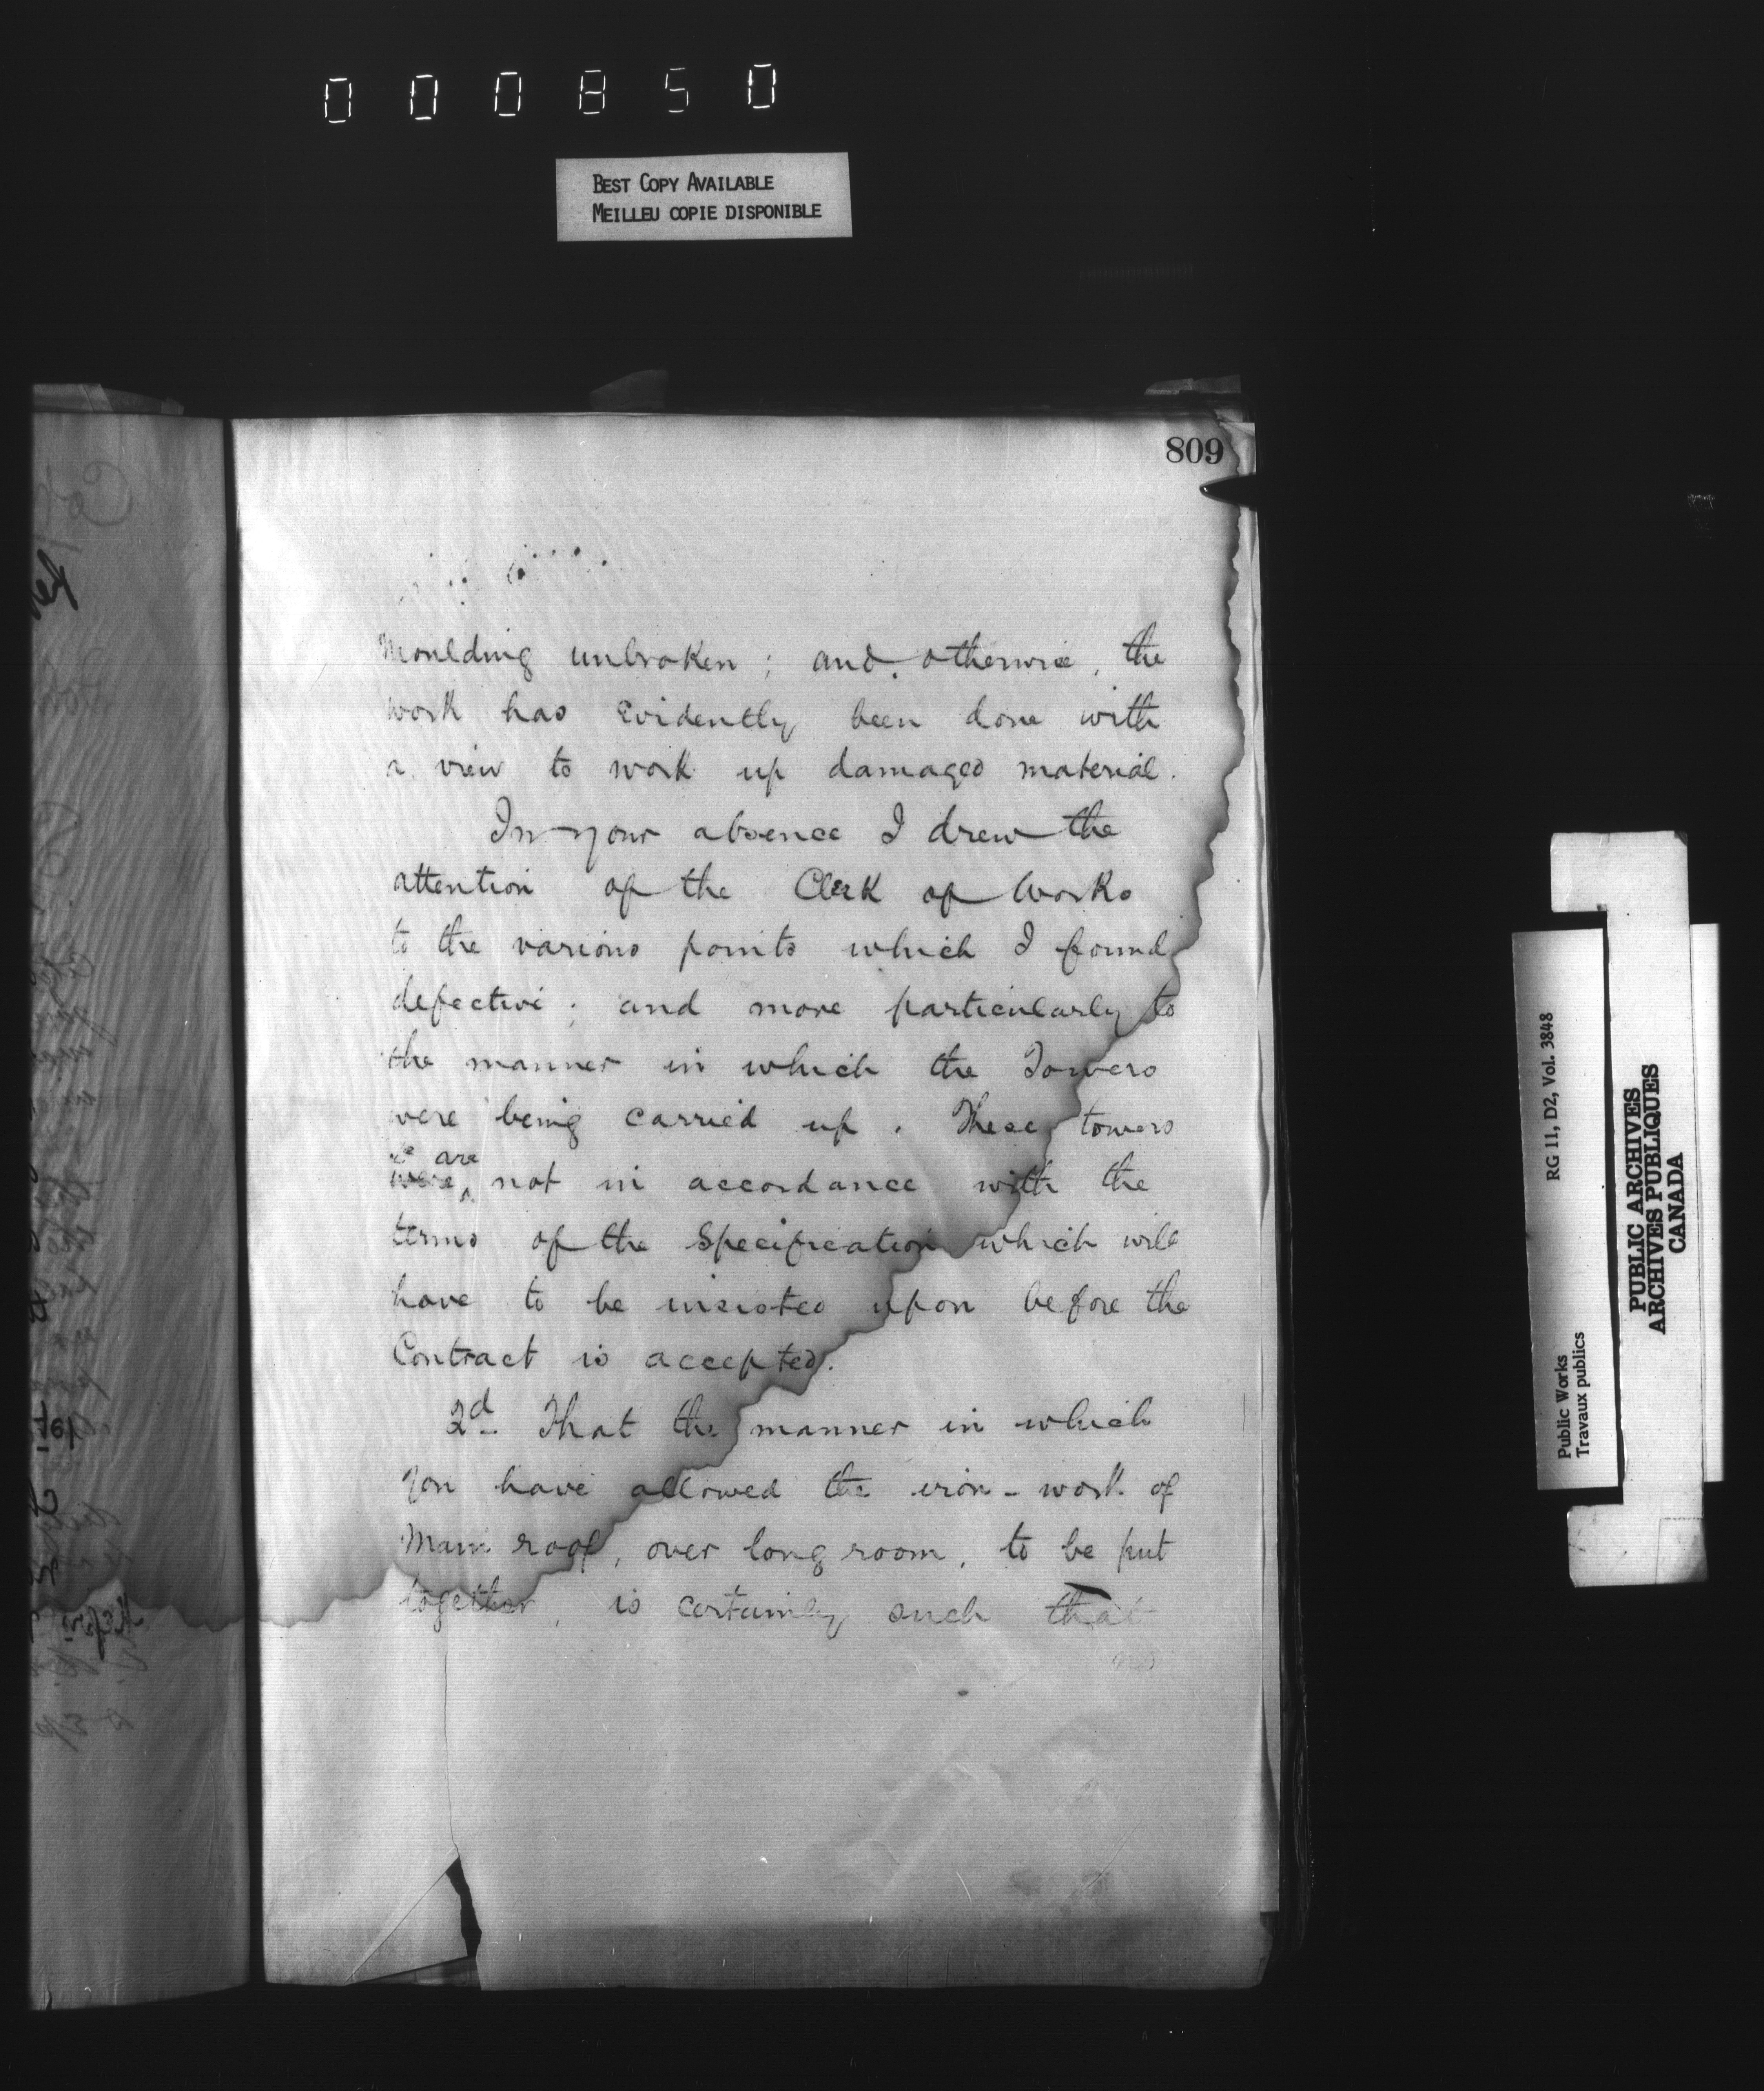 000850
BEST COPY AVAILABLE
MEILLEU COPIE DISPONIBLE
809
Moulding unbroken ; and otherwise, the
work has Evidently been done with
a view to work up damaged material.
In your absence I drew the
attention of the Clerk of Works
to the various points which I found
defective ; and more particularly to
the manner in which the Towers
were being carried up . These towers
& are
were not in accordance with the
terms of the Specification which will
have to be insisted upon before the
Contract is accepted.
2d That the manner in which
you have allowed the iron - work of
Main roof, over long room, to be put
together, is certainly such that
no
RG 11, D2, Vol. 3848
Public Works
Travaux publics
PUBLIC ARCHIVES
ARCHIVES PUBLIQUES
CANADA